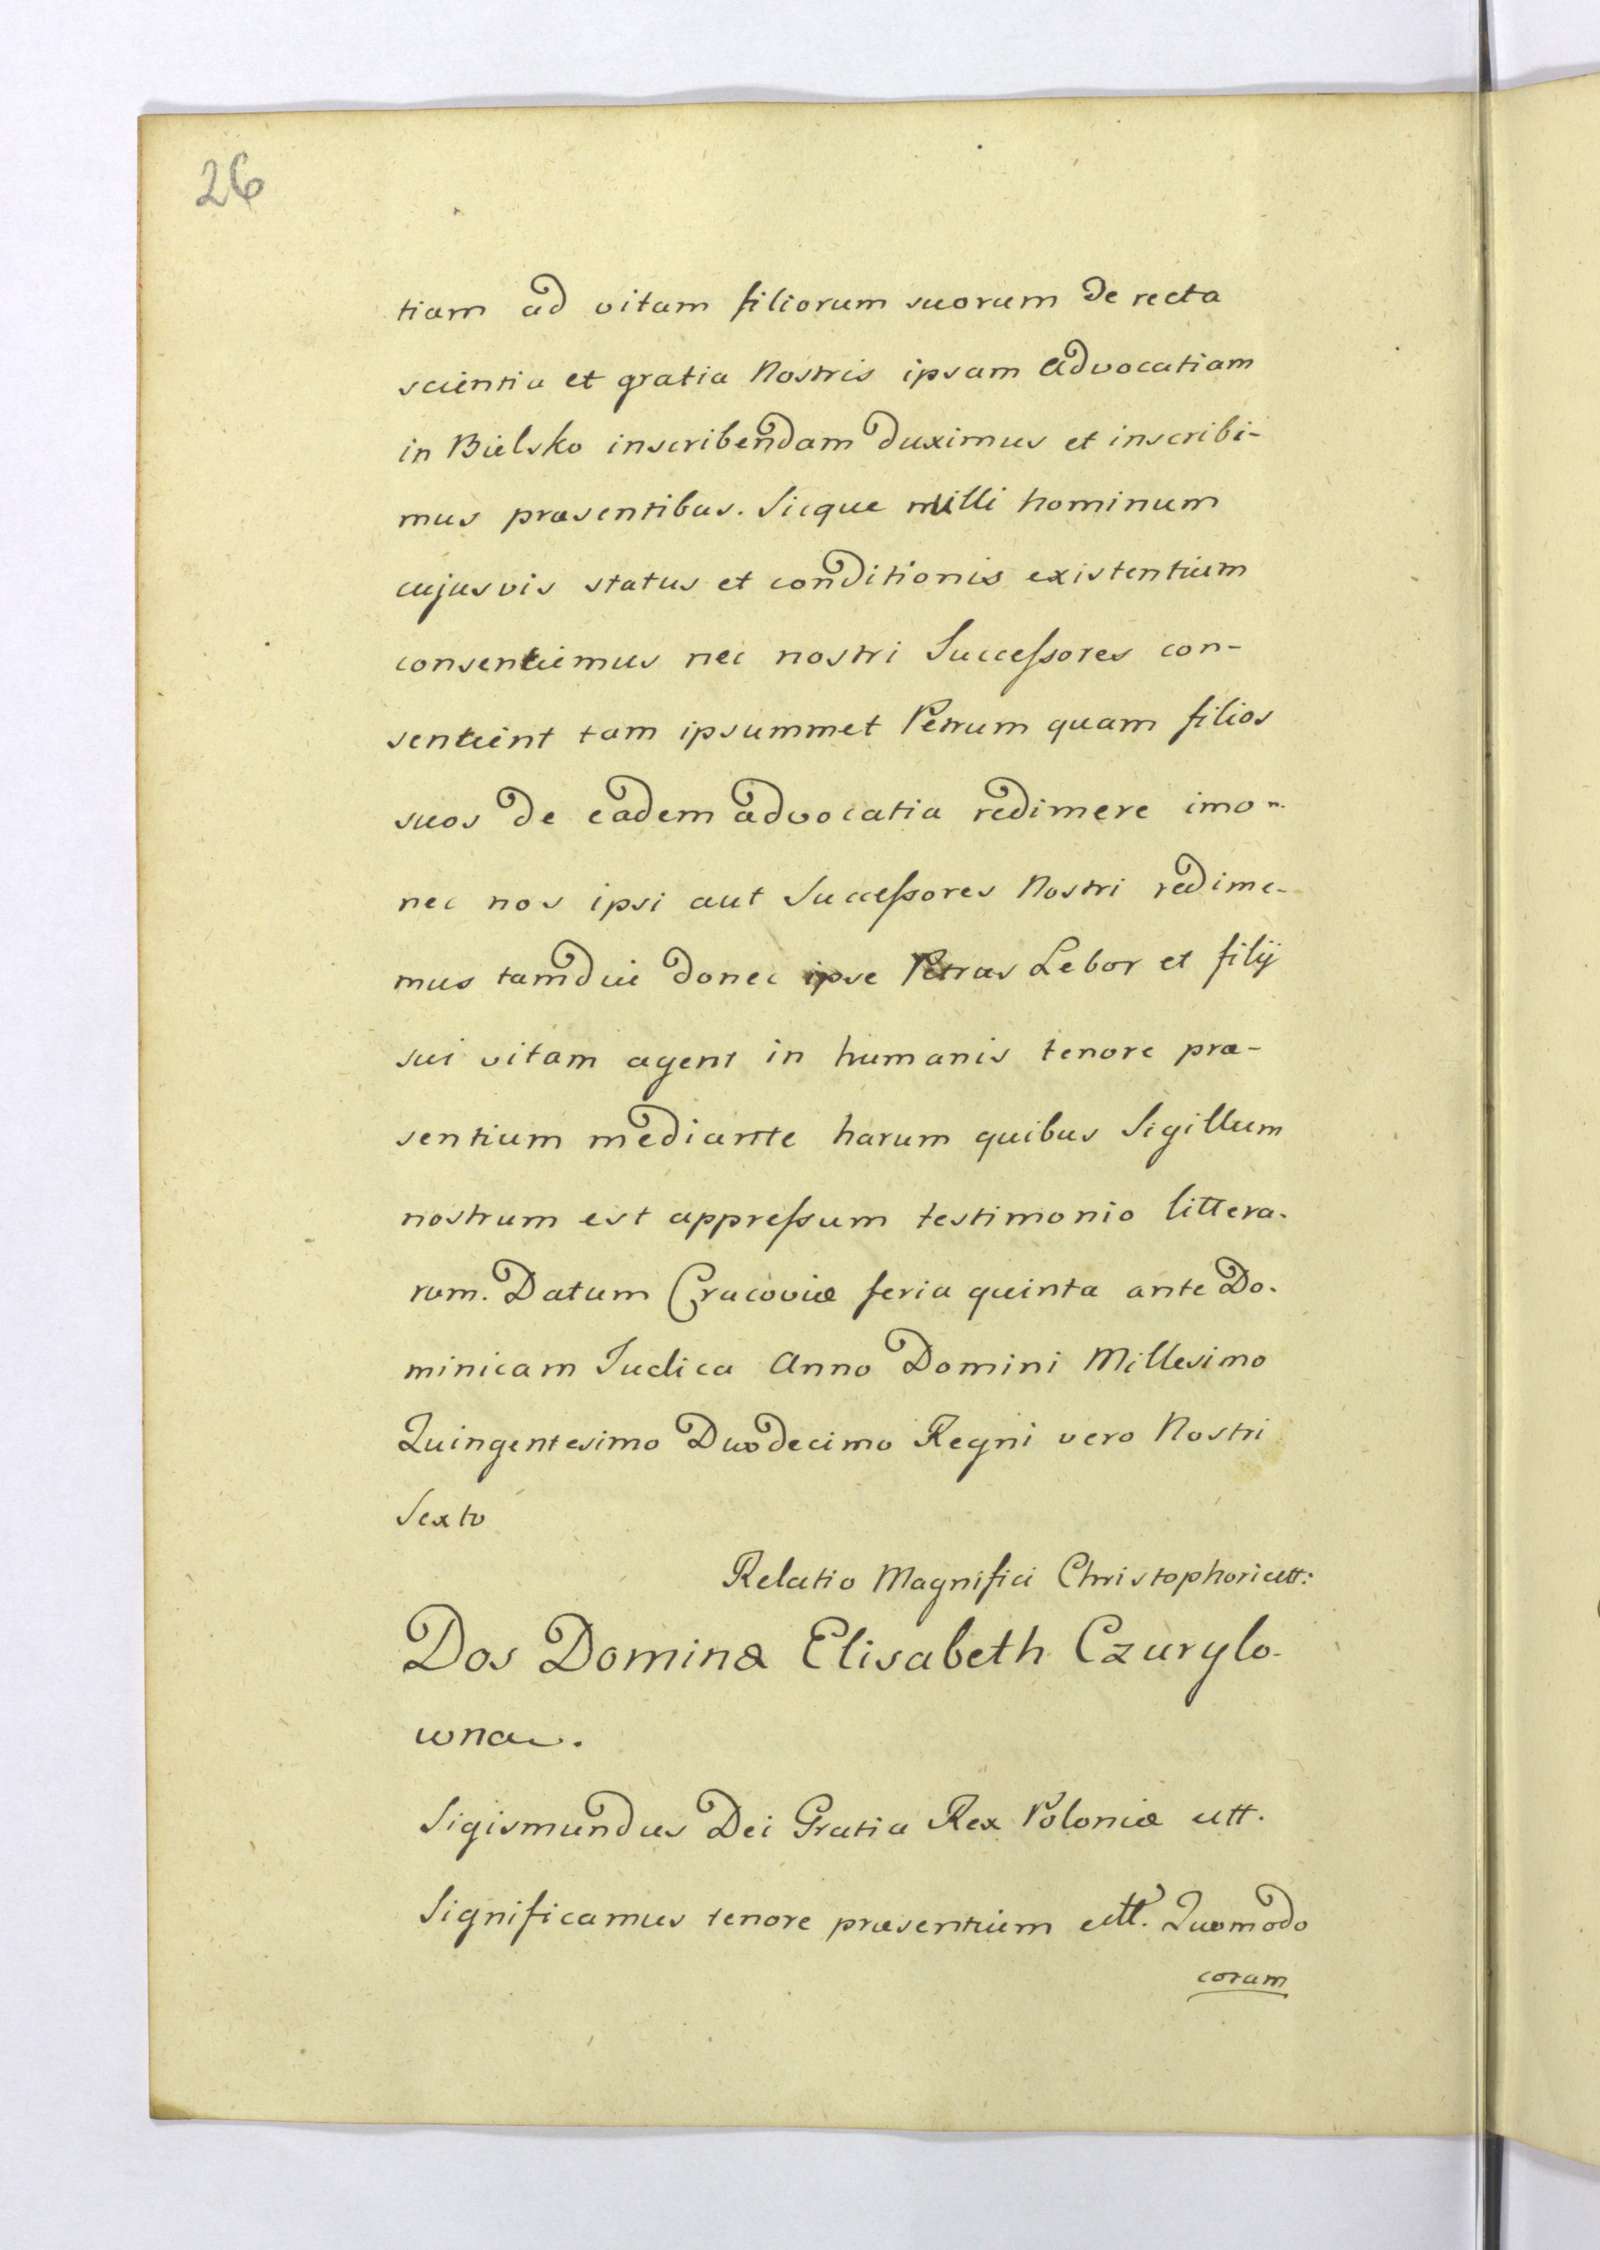 26
tiam ad vitam filiorum suorum de recta
scientia et gratia Nostris ipsam advocatiam
in Bielsko inscribendam duximus et inscribi-
mus præsentibus. Sicque nulli hominum
cujusvis status et conditionis existentium
consentiemus nec nostri Successores con-
sentient tam ipsummet Petrum quam filios
suos de eadem advocatia redimere imo
nec nos ipsi aut Successores Nostri redime-
mus tamdiu donec ipse Petrus Lebor et filij
sui vitam agent in humanis tenore præ-
sentium mediante harum quibus Sigillum
nostrum est appressum testimonio littera-
rum. Datum Cracoviæ feria quinta ante Do-
minicam Judica Anno Domini Millesimo
Quingentesimo Duodecimo Regni vero Nostri
Sexto
Relatio Magnifici Christophori utt:
Dos Dominæ Elisabeth Czurylo-
wna.
Sigismundus Dei Gratia Rex Poloniæ utt.
Significamus tenore præsentium utt. Quomodo
coram